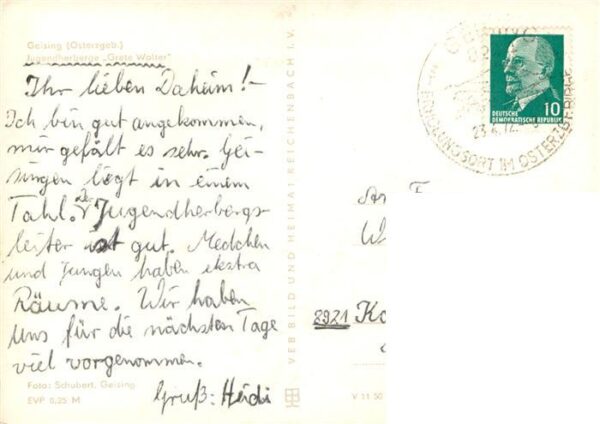 Geising (Osterzgeb.)
Jugendherberge „Grete Walter"
Ihr lieben Daheim!-
Ich bin gut angekommen,
mir gefält es sehr. Gei-
singen liegt in einem
Tahl. Der Jugendherbergs-
leiter ist gut. Medchen
und Jungen haben ekstra
Räume. Wir haben
uns für die nächsten Tage
viel vorgenommen.
Gruß: Heidi
Foto: Schubert, Geising
EVP 0,25 M
VEB BILD UND HEIMAT REICHENBACH I. V.
V 11 50
ERHOLUNGSORT IM OSTERZGEBIRGE
10
DEUTSCHE
DEMOKRATISCHE REPUBLIK
8921